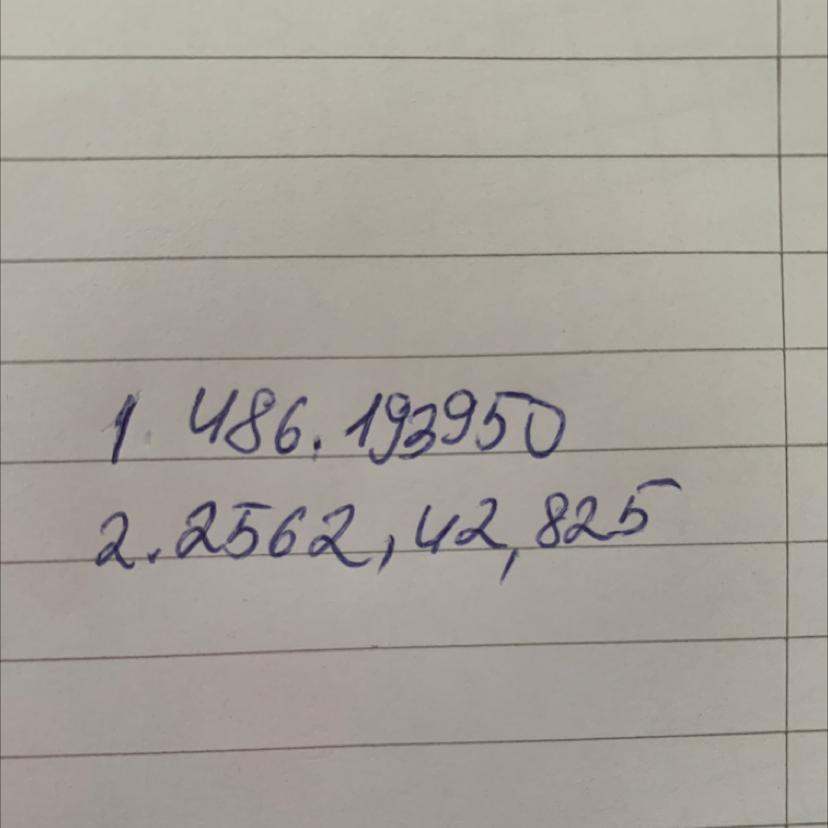 1. 486.193950
2. 2562,42,825